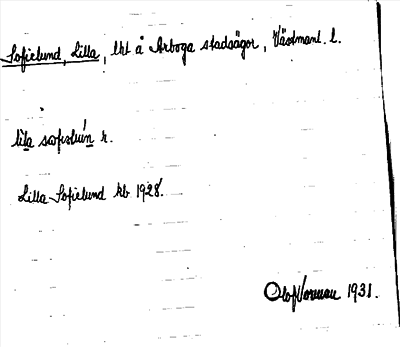 Sofielund, Lilla, lht å Arboga stadsägor, Västmanl. l.
lila sofislún r.
Lilla Sofielund kb 1928.
Olof 1931.